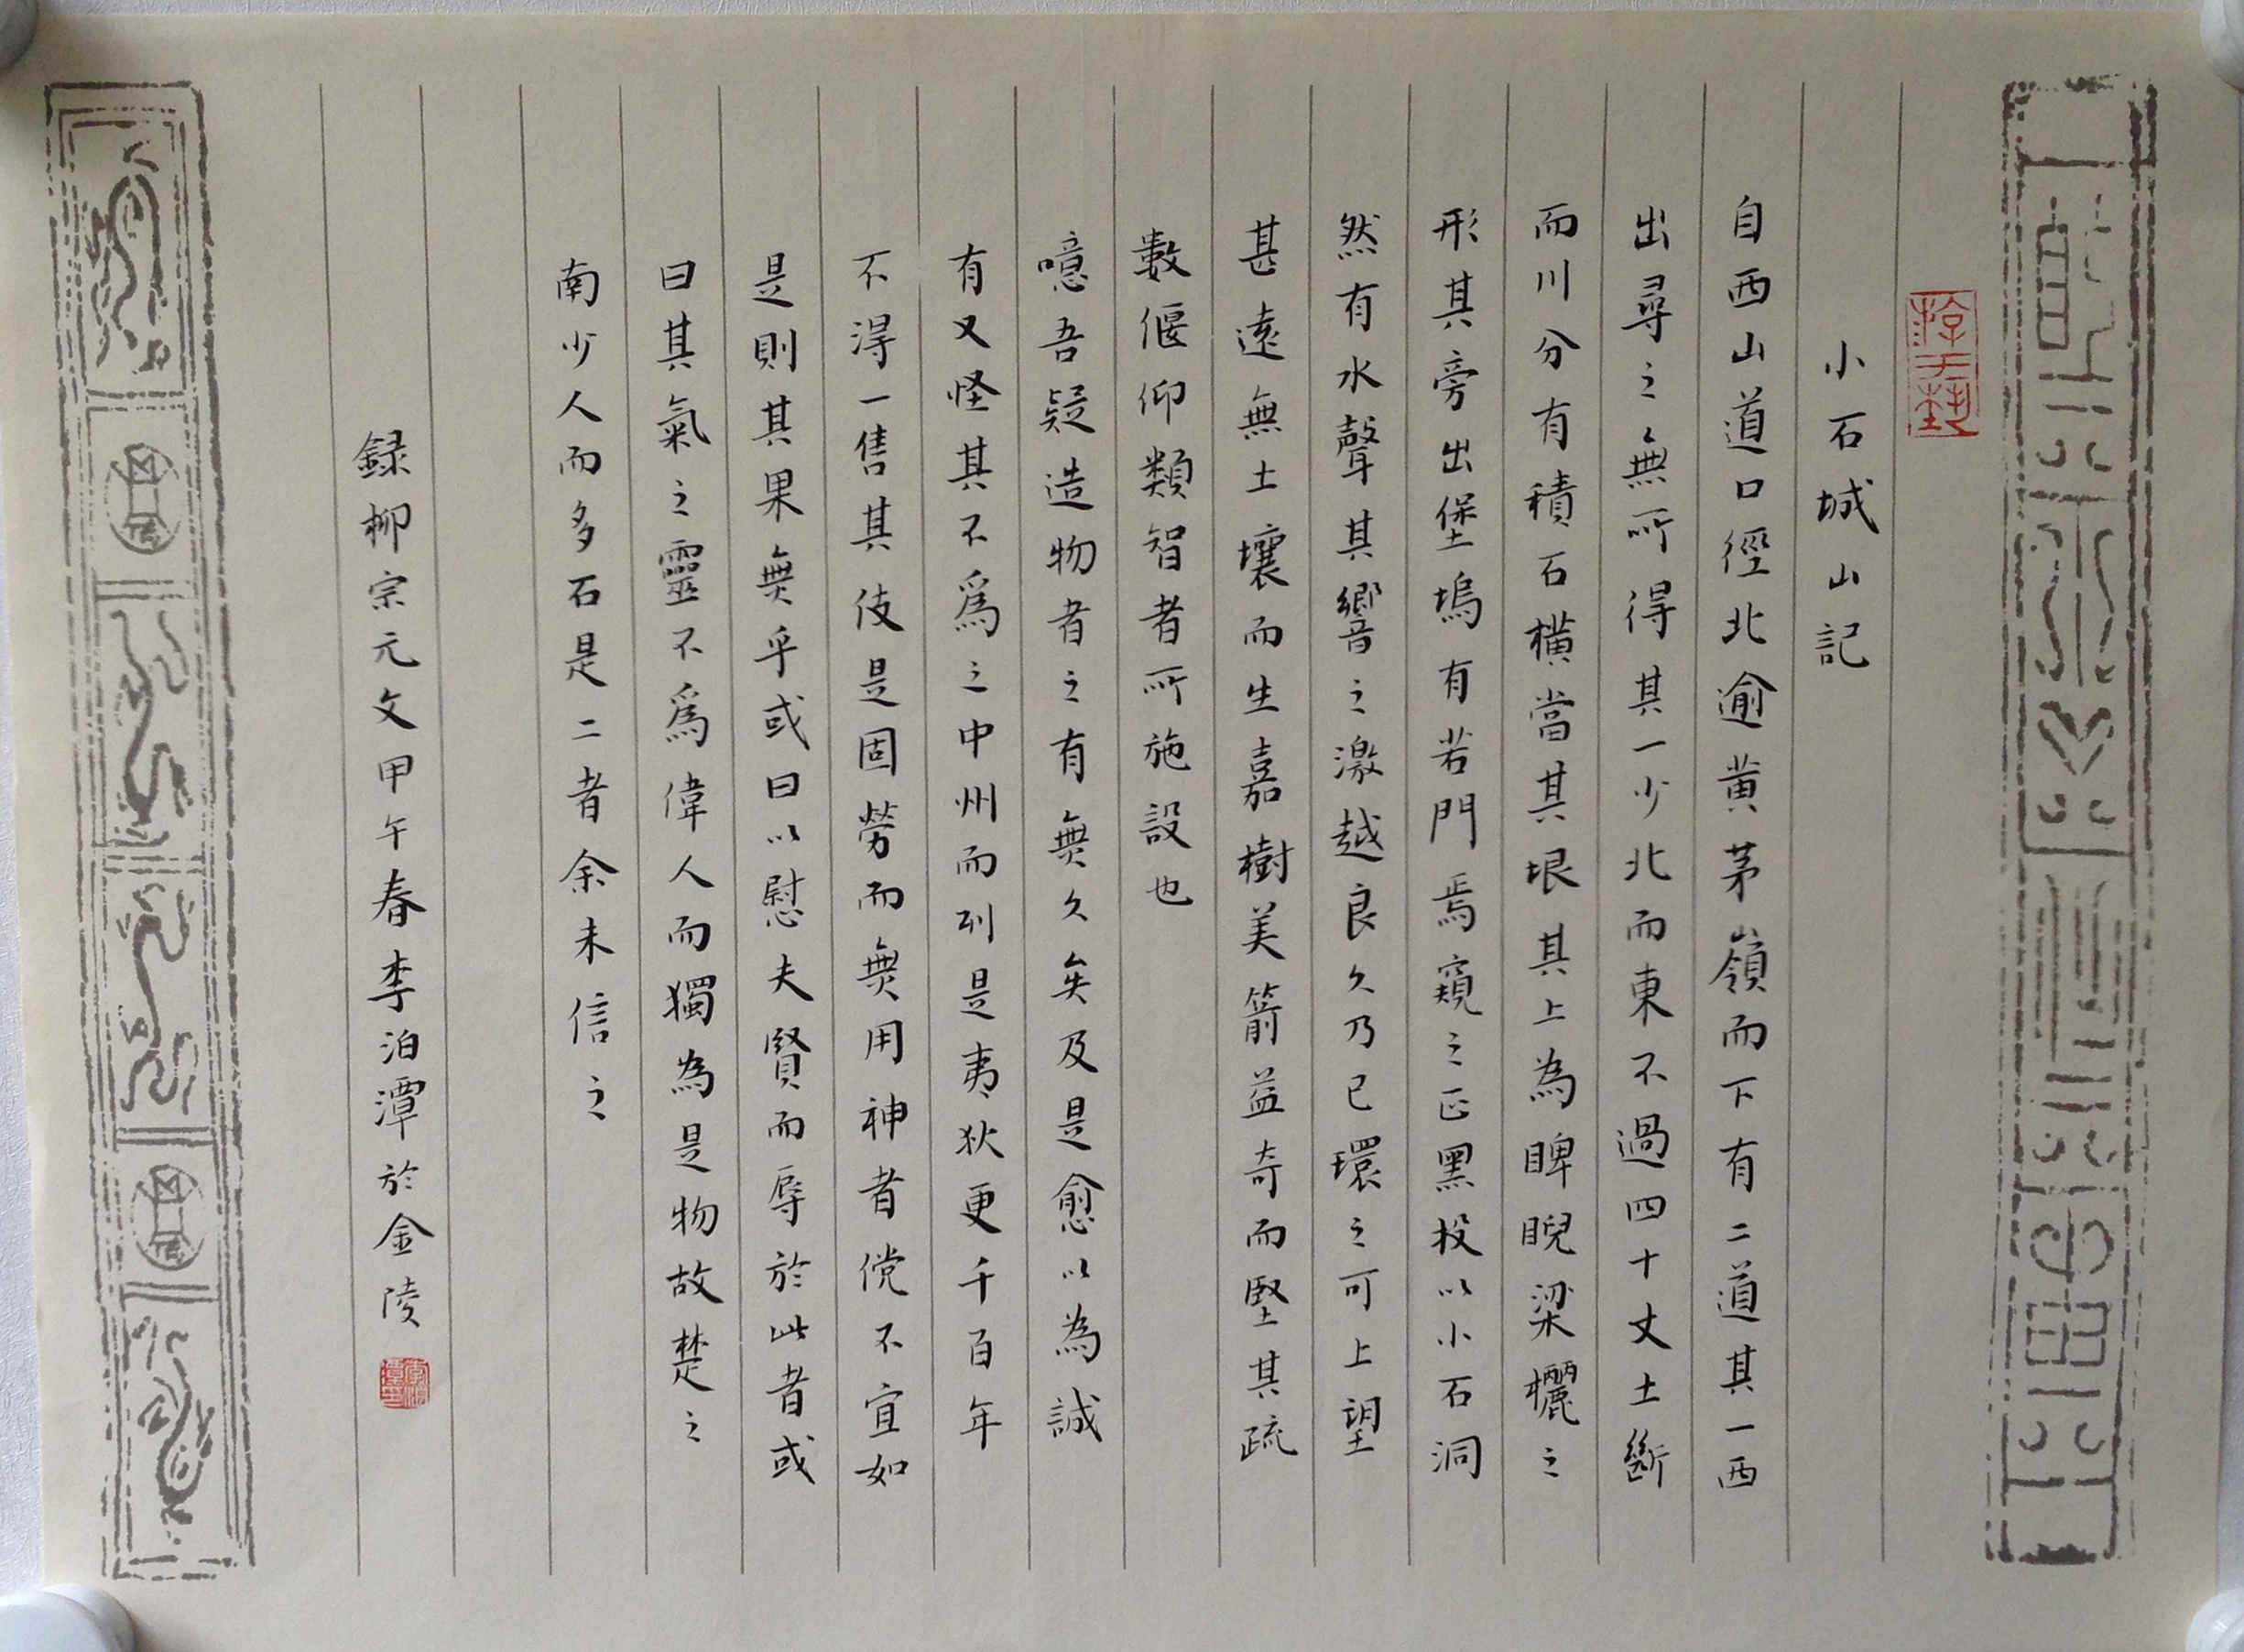 小石城山記
自西山道口徑北逾黄茅嶺而下有二道其一西
出尋之無所得其一少北而東不過四十丈土斷
而川分有積石橫當其垠其上為睥睨梁欐之
形其旁出堡塢有若門焉窺之正黑投以小石洞
然有水聲其響之激越良久乃已環之可上望
甚遠無土壤而生嘉樹美箭益奇而堅其疏
數偃仰類智者所施設也
噫吾疑造物者之有無久矣及是愈以為誠
有又怪其不爲之中州而列是夷狄更千百年
不得一售其伎是固勞而無用神者儻不宜如
是則其果無乎或曰以慰夫賢而辱於此者或
曰其氣之靈不爲偉人而獨為是物故楚之
南少人而多石是二者余未信之
録柳宗元文甲午春李泊潭於金陵